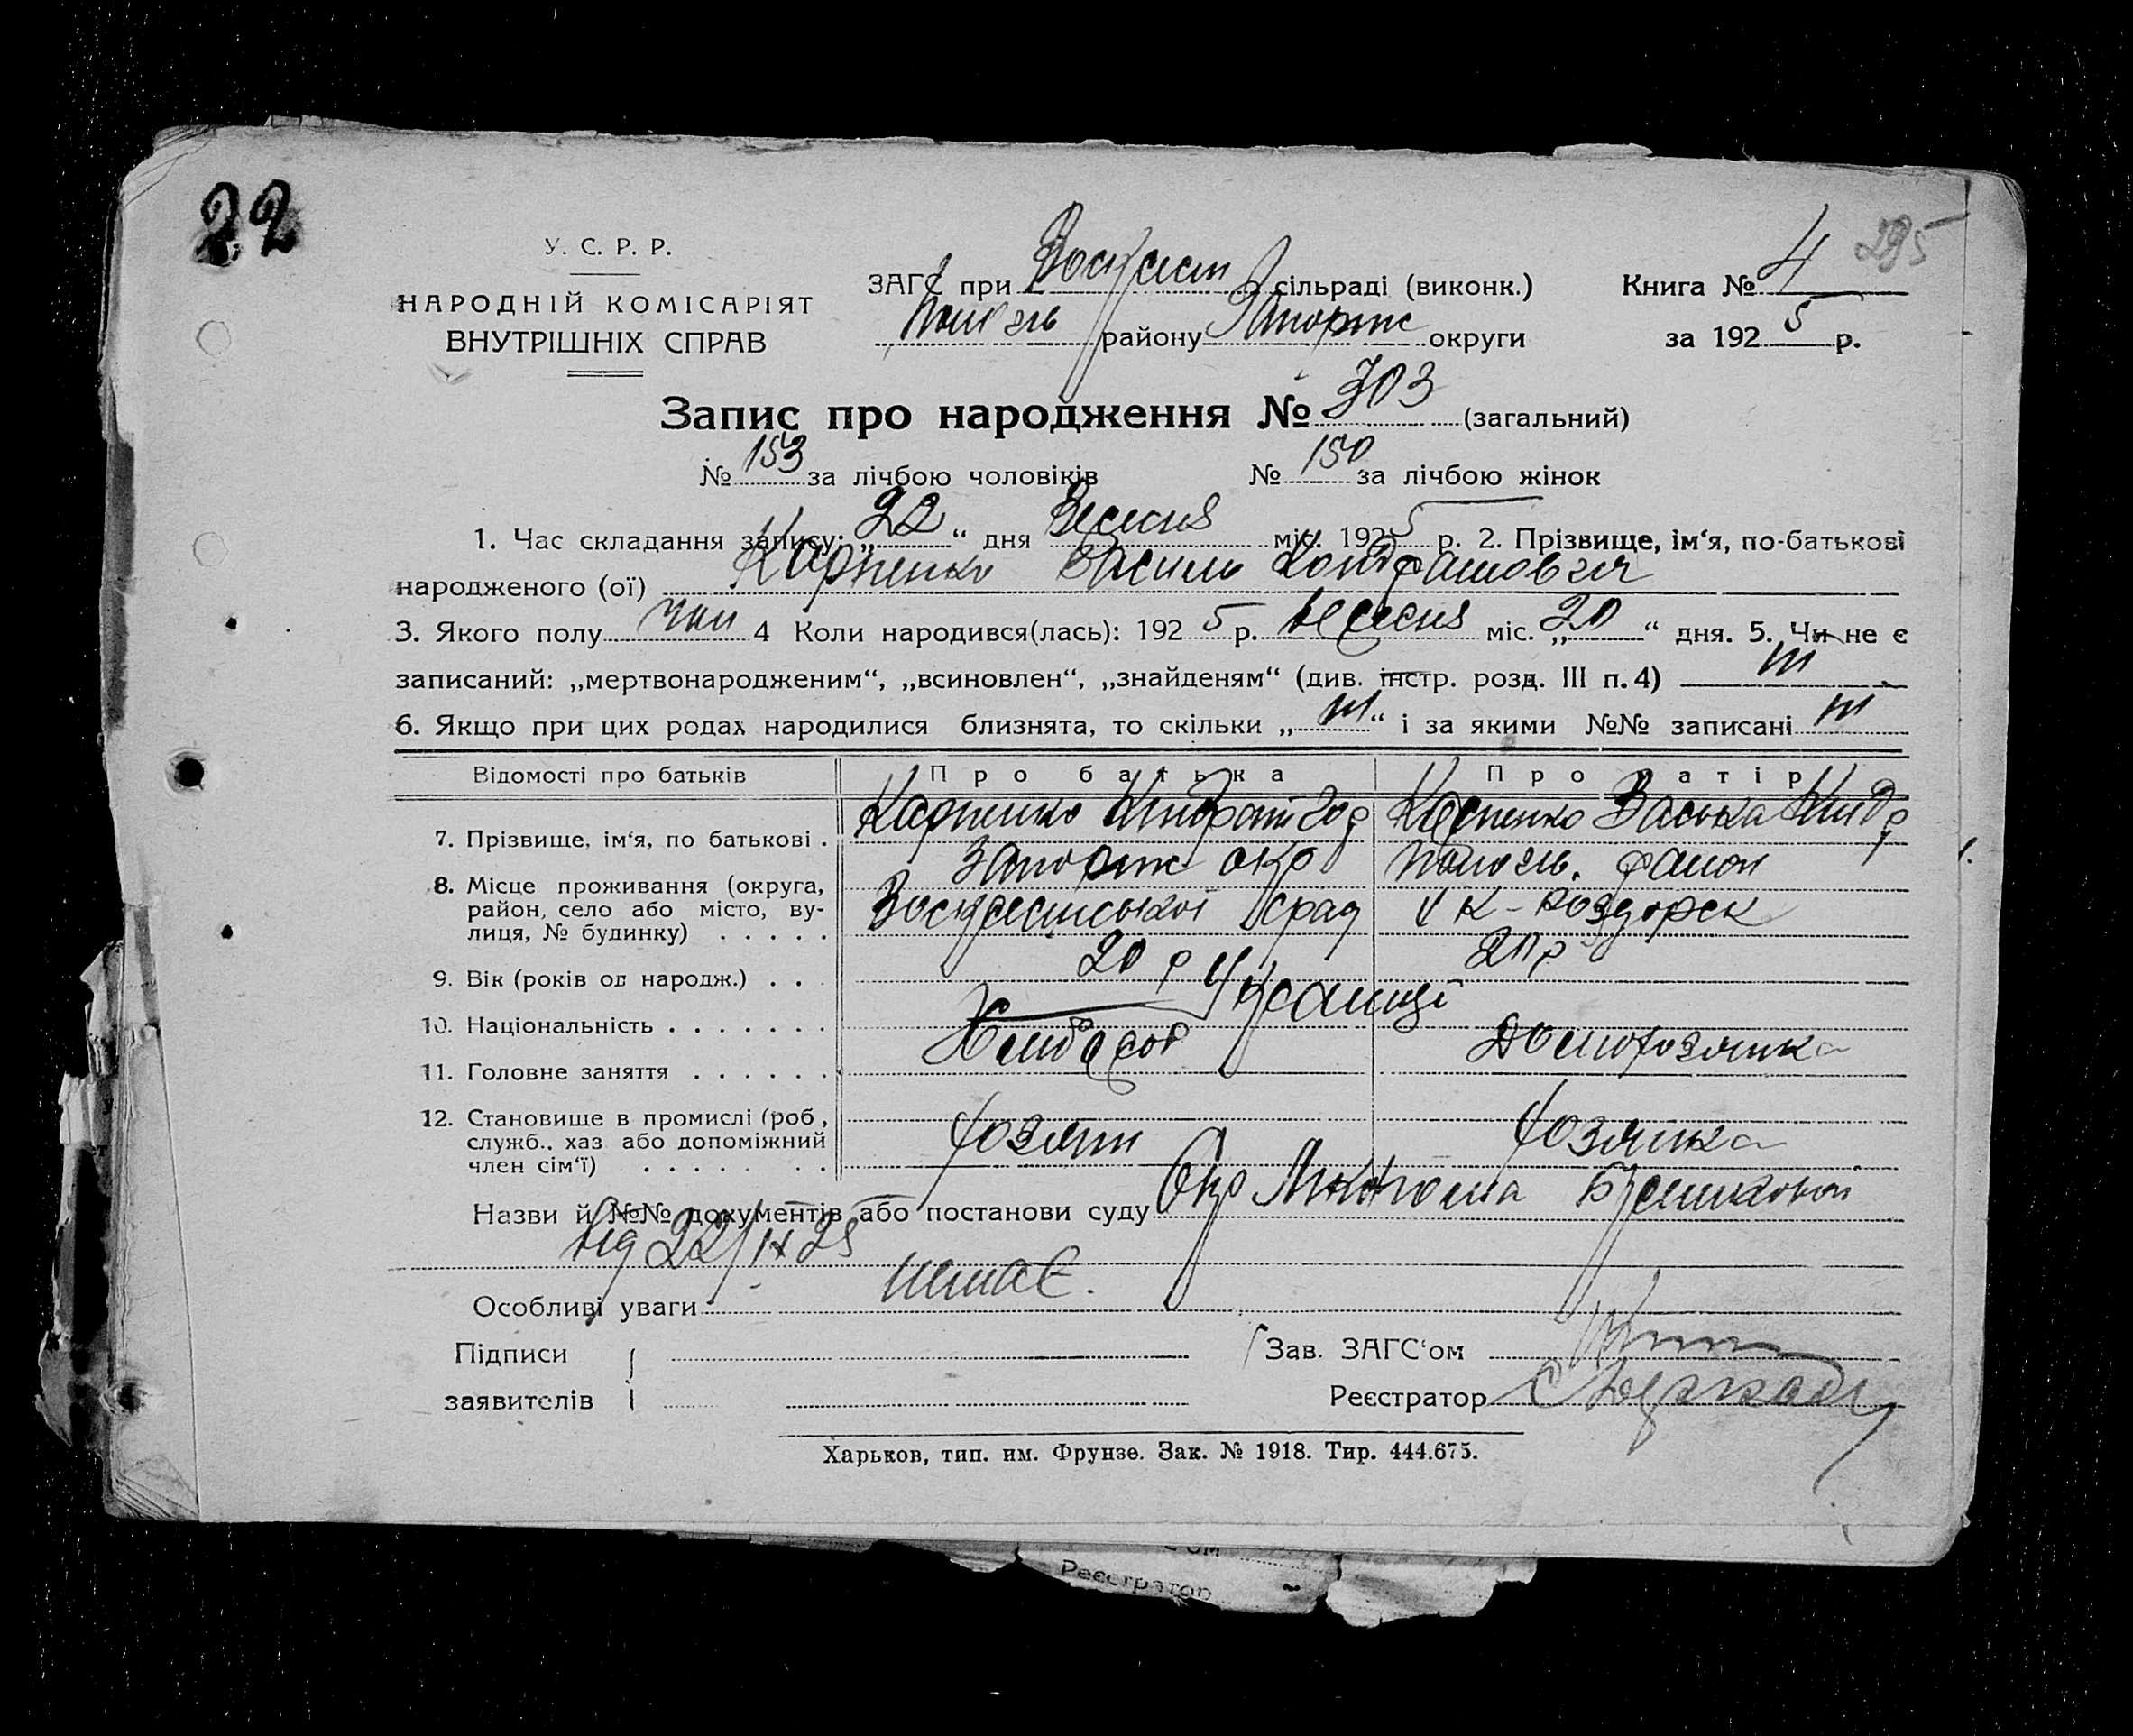 22
У. С. Р. Р.
НАРОДНІЙ КОМІСАРІЯТ
ВНУТРІШНІХ СПРАВ
ЗАГС при сільраді (виконк.)
району округи
Книга № 4
295
за 1925 р.
Запис про народження № 303 (загальний)
№ 153 за лічбою чоловіків № 150 за лічбою жінок
1. Час складання запису: „22“ дня Вересня міс. 1925 р. 2. Прізвище, ім‘я, по-батькові
народженого (ої) Карпенко Василь Кондратович
3. Якого полу чол 4 Коли народився(лась): 1925 р. Вересня міс. „20“ дня. 5. Чи не є
записаний: „мертвонародженим“, „всиновлен“, „знайденям“ (див. інстр. розд. III п. 4) ні
6. Якщо при цих родах народилися близнята, то скільки „ні“ і за якими №№ записані ні
Відомості про батьків Про батька Про матір
7. Прізвище, ім‘я, по батькові . Карпенко Кондрат Карпенко Васька
8. Місце проживання (округа, Запорож окр район
район, село або місто, ву- Воскресенської
лиця, № будинку) . . . . .
9. Вік (років од народж.) . . 20 р 20 р
10. Національність . . . . . . . Українці
11. Головне заняття . . . . . . Хлібороб Домохозяйка
12. Становище в промислі (роб,
служб., хаз або допоміжний хозяин хозяйка
член сім‘ї) . . . . . . .
Назви й №№ документів або постанови суду
від 22/IX 25
Особливі уваги немає.
Підписи
заявителів
Зав. ЗАГС‘ом
Реєстратор
Харьков, тип. им. Фрунзе. Зак. № 1918. Тир. 444.675.
С‘ОМ
Реєстратор